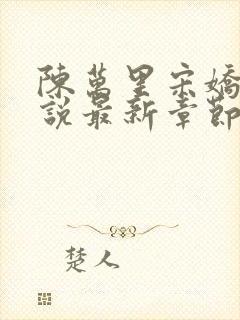 陳萬里宋嬌
說最新章節
楚人